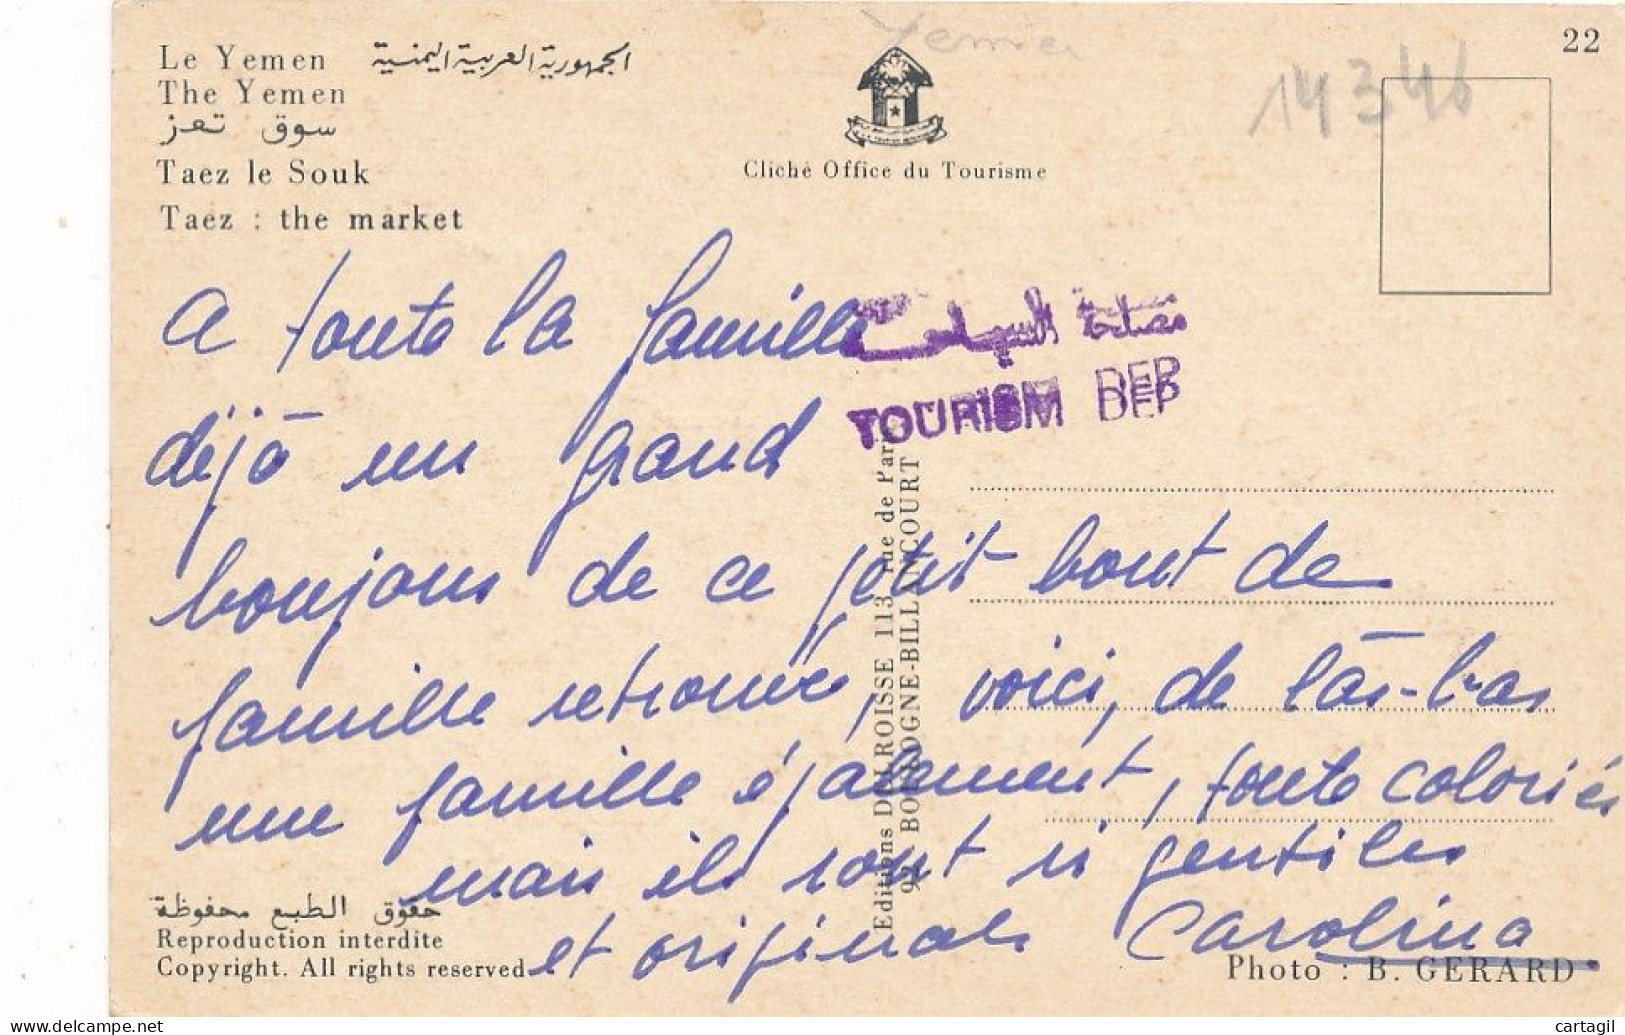 Yemen
22
14346
Le Yemen الجمهورية العربية اليمنية
The Yemen
سوق تعز
Taez le Souk
Taez : the market
Cliché Office du Tourisme
مصلحة السياحة
TOURISM DEP
A toute la famille
déjà un grand
bonjour de ce petit bout de
famille retrouvée, voici, de là-bas
une famille également, toute coloriée
mais ils sont si gentils
et originals Carolina
Editions DELROISSE 113, rue de Paris
92 BOULOGNE-BILLANCOURT
حقوق الطبع محفوظة
Reproduction interdite
Copyright. All rights reserved
Photo : B. GERARD
cartagil-dlc-http://www.delcampe.net
cartagil